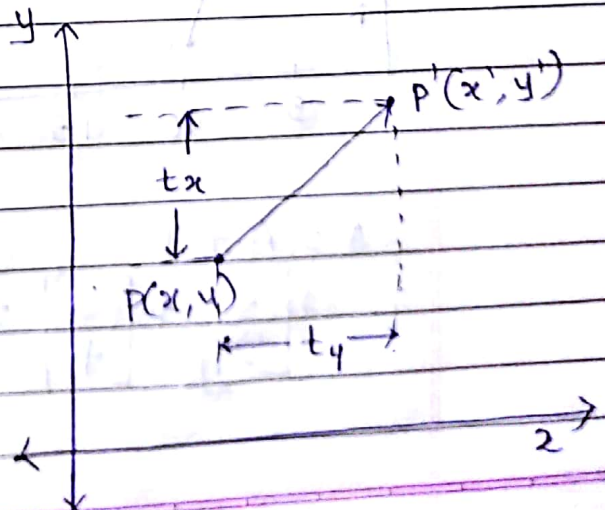 y
P'(x', y')
tx
P(x, y)
ty
x